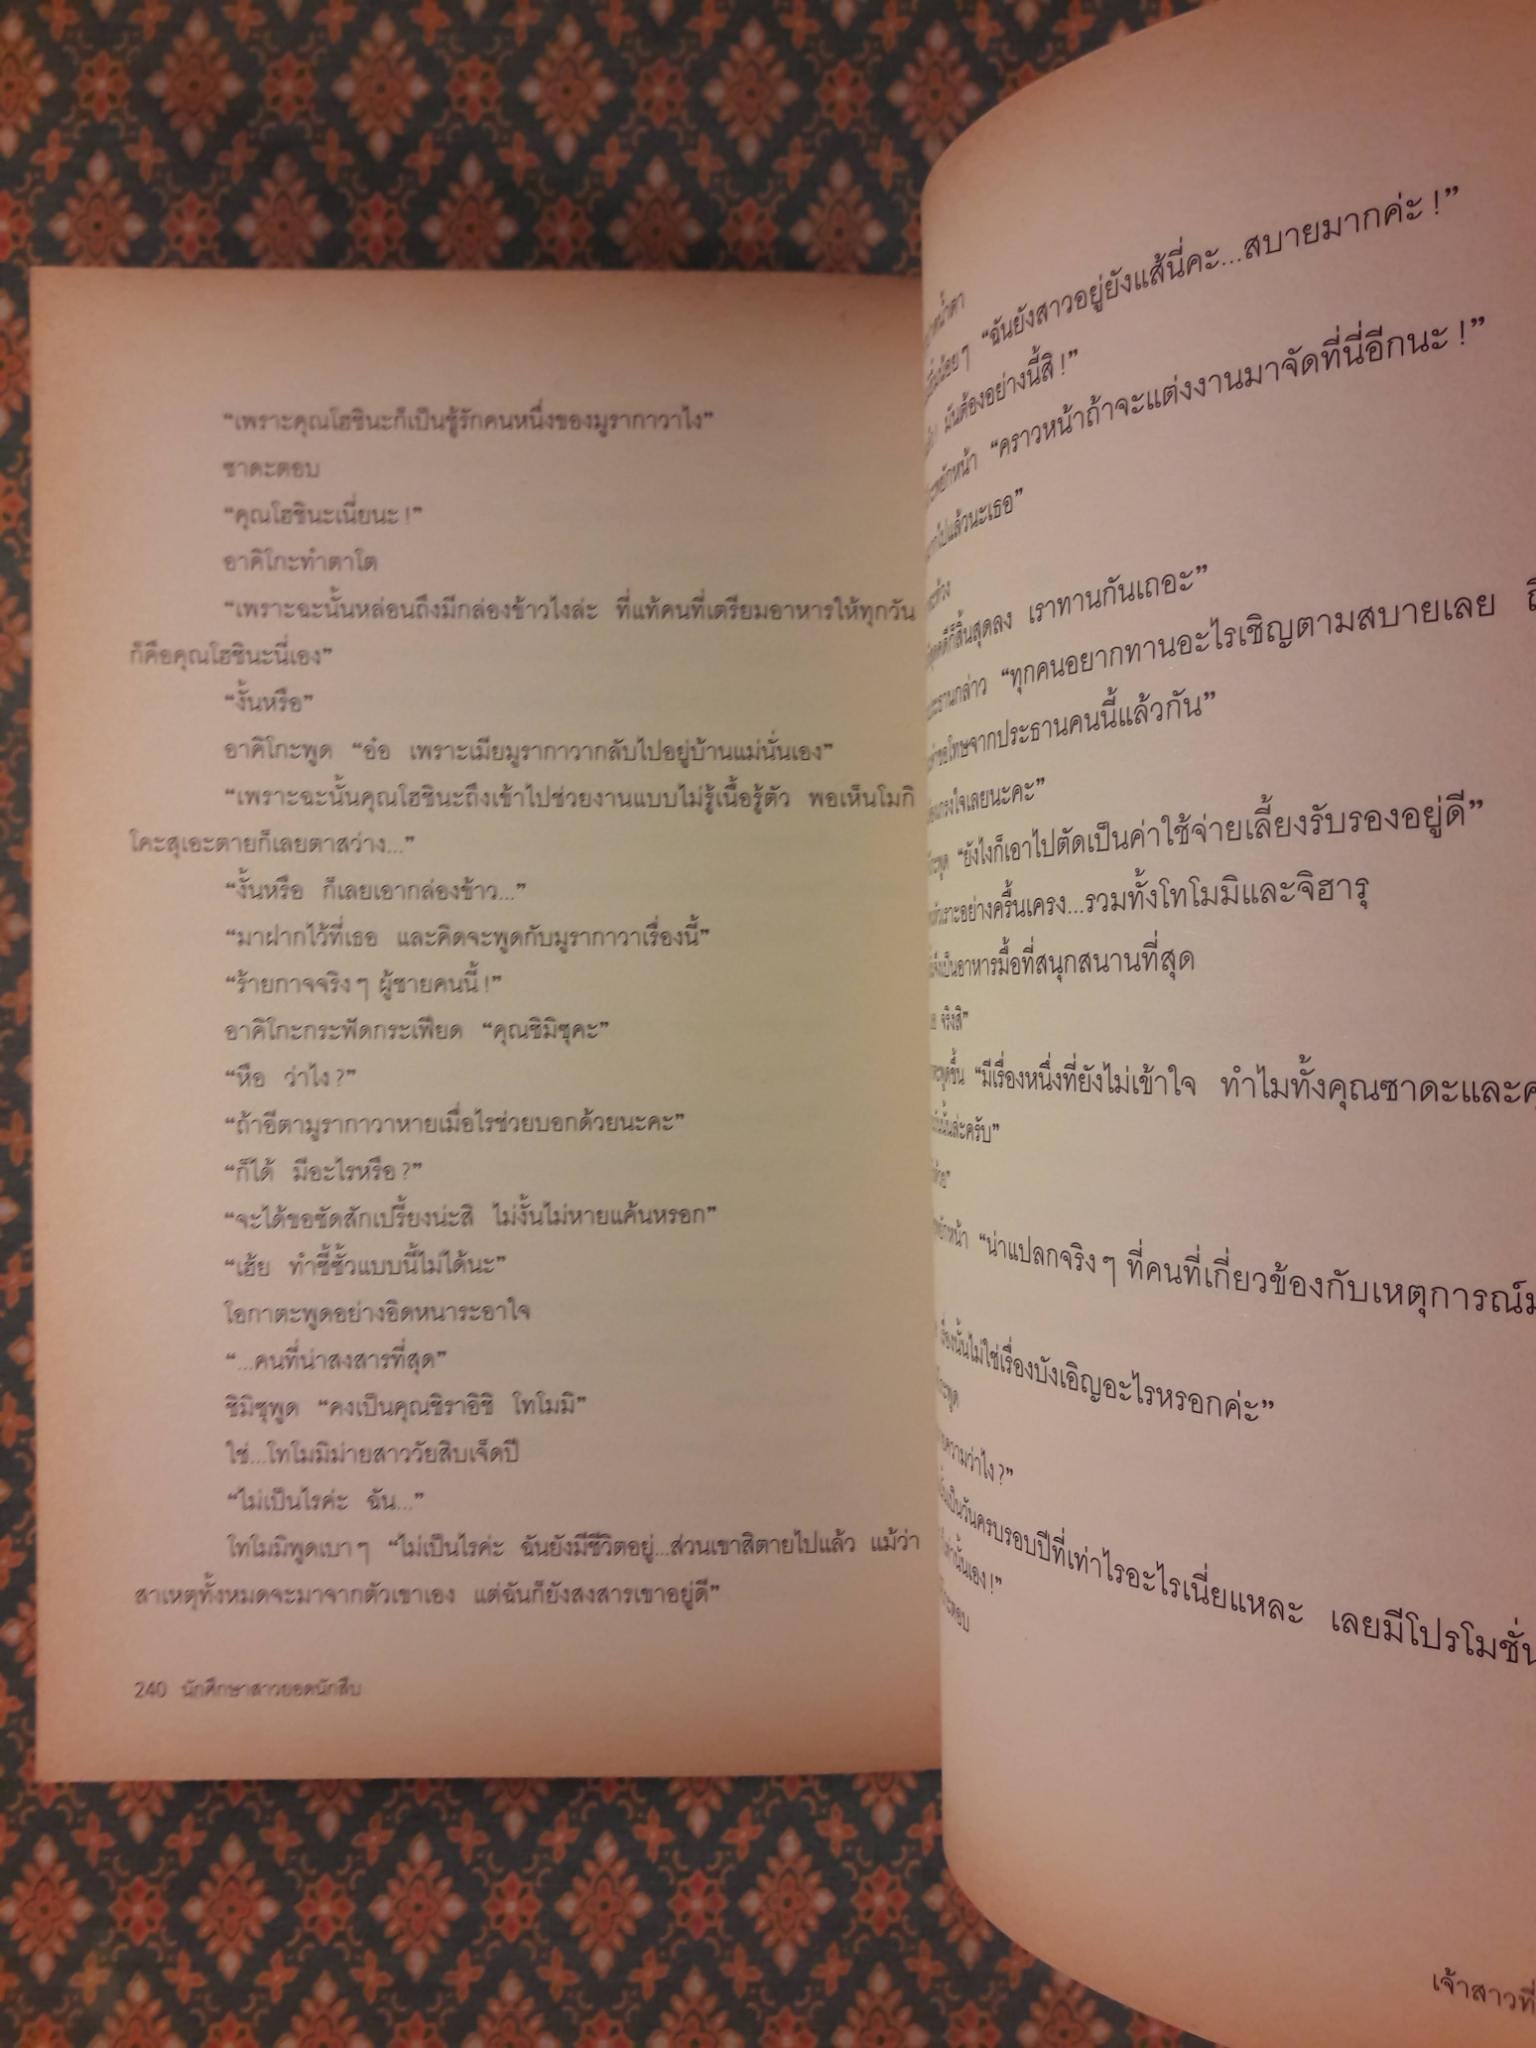 “เพราะคุณโฮชินะก็เป็นชู้รักคนหนึ่งของมูรากาวาไง”
ซาดะตอบ
“คุณโฮชินะเนี่ยนะ !”
อาคิโกะทำตาโต
“เพราะฉะนั้นหล่อนถึงมีกล่องข้าวไงล่ะ ที่แท้คนที่เตรียมอาหารให้ทุกวัน
ก็คือคุณโฮชินะนี่เอง”
“งั้นหรือ”
อาคิโกะพูด “อ๋อ เพราะเมียมูรากาวากลับไปอยู่บ้านแม่นั่นเอง”
“เพราะฉะนั้นคุณโฮชินะถึงเข้าไปช่วยงานแบบไม่รู้เนื้อรู้ตัว พอเห็นโมกิ
โคะสุเอะตายก็เลยตาสว่าง...”
“งั้นหรือ ก็เลยเอากล่องข้าว...”
“มาฝากไว้ที่เธอ และคิดจะพูดกับมูรากาวาเรื่องนี้”
“ร้ายกาจจริงๆ ผู้ชายคนนี้ !”
อาคิโกะกระฟัดกระเฟียด “คุณชิมิซุคะ”
“หือ ว่าไง ?”
“ถ้าอีตามูรากาวาหายเมื่อไรช่วยบอกด้วยนะคะ”
“ก็ได้ มีอะไรหรือ ?”
“จะได้ขอซัดสักเปรี้ยงน่ะสิ ไม่งั้นไม่หายแค้นหรอก”
“เฮ้ย ทำซี้ซั้วแบบนี้ไม่ได้นะ”
โอกาตะพูดอย่างอิดหนาระอาใจ
“...คนที่น่าสงสารที่สุด”
ชิมิซุพูด “คงเป็นคุณชิราอิชิ โทโมมิ”
ใช่...โทโมมิม่ายสาววัยสิบเจ็ดปี
“ไม่เป็นไรค่ะ ฉัน...”
โทโมมิพูดเบาๆ “ไม่เป็นไรค่ะ ฉันยังมีชีวิตอยู่...ส่วนเขาสิตายไปแล้ว แม้ว่า
สาเหตุทั้งหมดจะมาจากตัวเขาเอง แต่ฉันก็ยังสงสารเขาอยู่ดี”
240 นักศึกษาสาวยอดนักสืบ
น้ำตา
“ฉันยังสาวอยู่ยังแส้นี่คะ...สบายมากค่ะ !”
มันต้องอย่างนี้สิ !”
พยักหน้า “คราวหน้าถ้าจะแต่งงานมาจัดที่นี่อีกนะ !”
ไปแล้วนะเธอ”
ก็สิ้นสุดลง เราทานกันเถอะ”
กล่าว “ทุกคนอยากทานอะไรเชิญตามสบายเลย
ขอโทษจากประธานคนนี้แล้วกัน”
เกรงใจเลยนะคะ”
พูด “ยังไงก็เอาไปตัดเป็นค่าใช้จ่ายเลี้ยงรับรองอยู่ดี”
อย่างครื้นเครง...รวมทั้งโทโมมิและจิฮารุ
เป็นอาหารมื้อที่สนุกสนานที่สุด
จริงสิ”
พูดขึ้น “มีเรื่องหนึ่งที่ยังไม่เข้าใจ ทำไมทั้งคุณซาดะและ
นั้นล่ะครับ”
“น่าแปลกจริงๆ ที่คนที่เกี่ยวข้องกับเหตุการณ์
เรื่องนั้นไม่ใช่เรื่องบังเอิญอะไรหรอกค่ะ”
พูด
ความว่าไง ?”
เป็นวันครบรอบปีที่เท่าไรอะไรเนี่ยแหละ เลยมีโปรโมชั่น
เท่านั้นเอง !”
ตอบ
เจ้าสาวที่